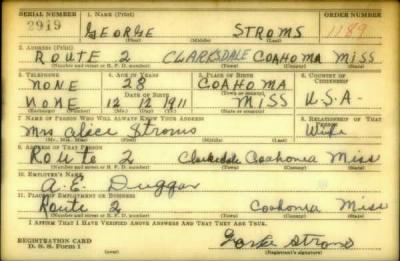 SERIAL NUMBER 1. NAME (Print) ORDER NUMBER
2919 GEORGE STROMS 1189
(First) (Middle) (Last)
2. ADDRESS (Print)
ROUTE 2 CLARKSDALE COAHOMA MISS
(Number and street or R. F. D. number) (Town) (County) (State)
3. TELEPHONE 4. AGE IN YEARS 5. PLACE OF BIRTH 6. COUNTRY OF CITIZENSHIP
NONE 28 COAHOMA
DATE OF BIRTH (Town or county)
NONE 12 12 1911 MISS U.S.A.
(Mo.) (Day) (Yr.) (State or country)
7. NAME OF PERSON WHO WILL ALWAYS KNOW YOUR ADDRESS 8. RELATIONSHIP OF THAT PERSON
Mrs. Alice Stroms Wife
(Mr., Mrs., Miss) (First) (Middle) (Last)
9. ADDRESS OF THAT PERSON
Route 2 Clarksdale Coahoma Miss
(Number and street or R. F. D. number) (Town) (County) (State)
10. EMPLOYER'S NAME
A. E. Duggar
11. PLACE OF EMPLOYMENT OR BUSINESS
Route 2 Coahoma Miss
(Number and street or R. F. D. number) (Town) (County) (State)
I AFFIRM THAT I HAVE VERIFIED ABOVE ANSWERS AND THAT THEY ARE TRUE.
REGISTRATION CARD
D. S. S. Form 1 George Stroms
(Registrant's signature)